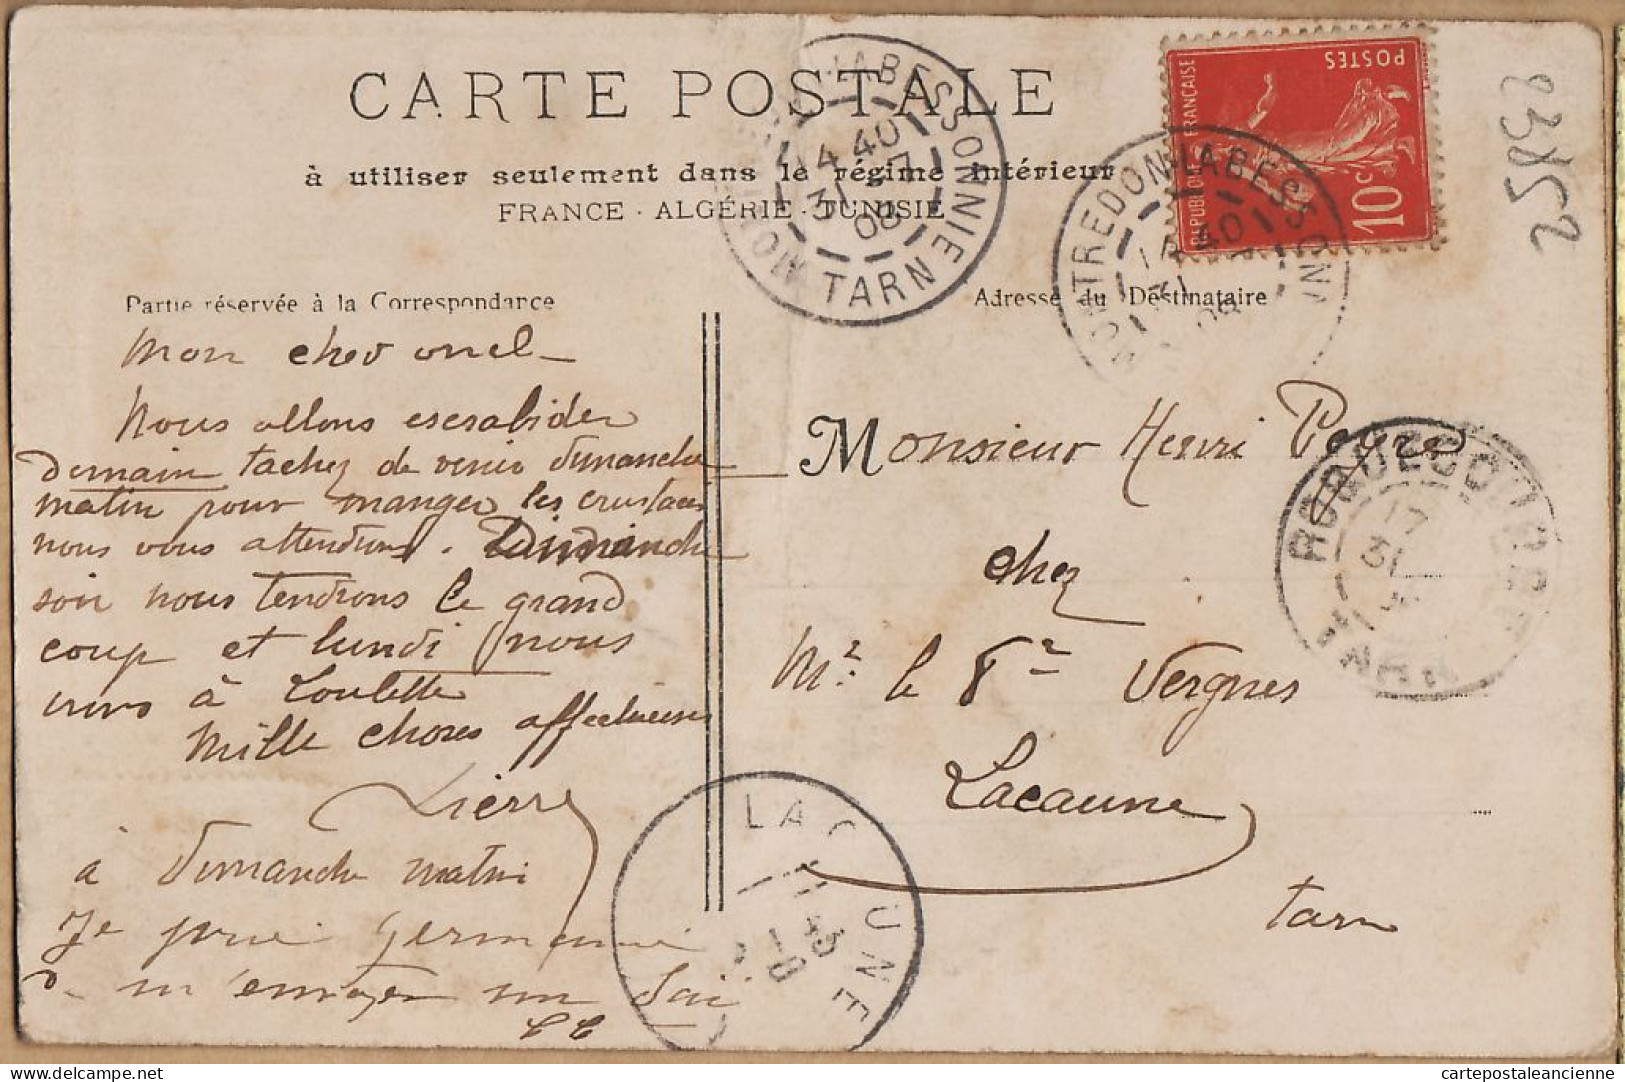 CARTE POSTALE
à utiliser seulement dans le régime intérieur
FRANCE · ALGÉRIE · TUNISIE
Partie réservée à la Correspondance
Adresse du Destinataire
REPUBLIQUE FRANÇAISE
POSTES
10c
23852
MONTREDON-LABESSONNIE
14 40
31 -7
08
TARN
MONTREDON-LABESSONNIE
40
08
ROQUECOURBE
17
31
TARN
LACAUNE
Mon cher oncl
Nous allons escrabider
demain tachez de venir dimanche
matin pour manger les crustacés
nous vous attendrons. Dimanche
soir nous tendrons le grand
coup et lundi nous
irons à Loulette
Mille choses affectueuses
Pierre
à dimanche matin
Je prie Germaine
de m'envoyer un
Monsieur Henri Peyre
chez
Mr. le Dr Vergnes
Lacaune
tarn
cartepostaleancienne.com
cartepostaleancienne